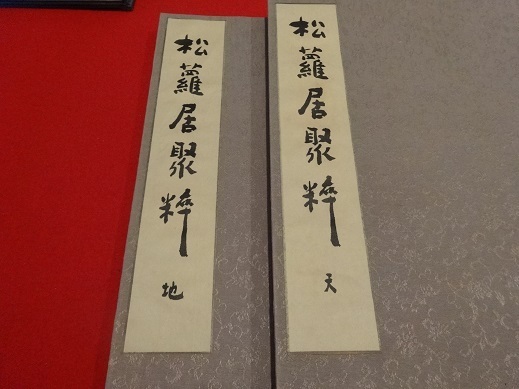 松蘿居聚粹 天
松蘿居聚粹 地